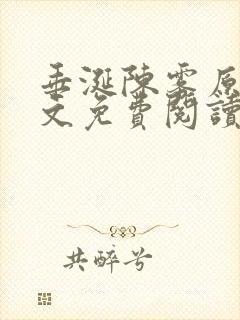 垂涎陳霧原
文免費閱讀
共醉兮